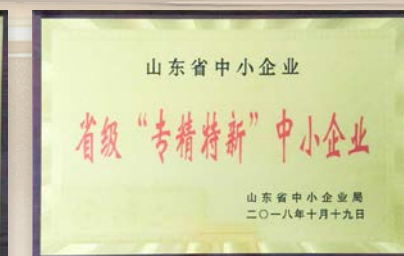 山东省中小企业
省级“专精特新”中小企业
山东省中小企业局
二〇一八年十月十九日